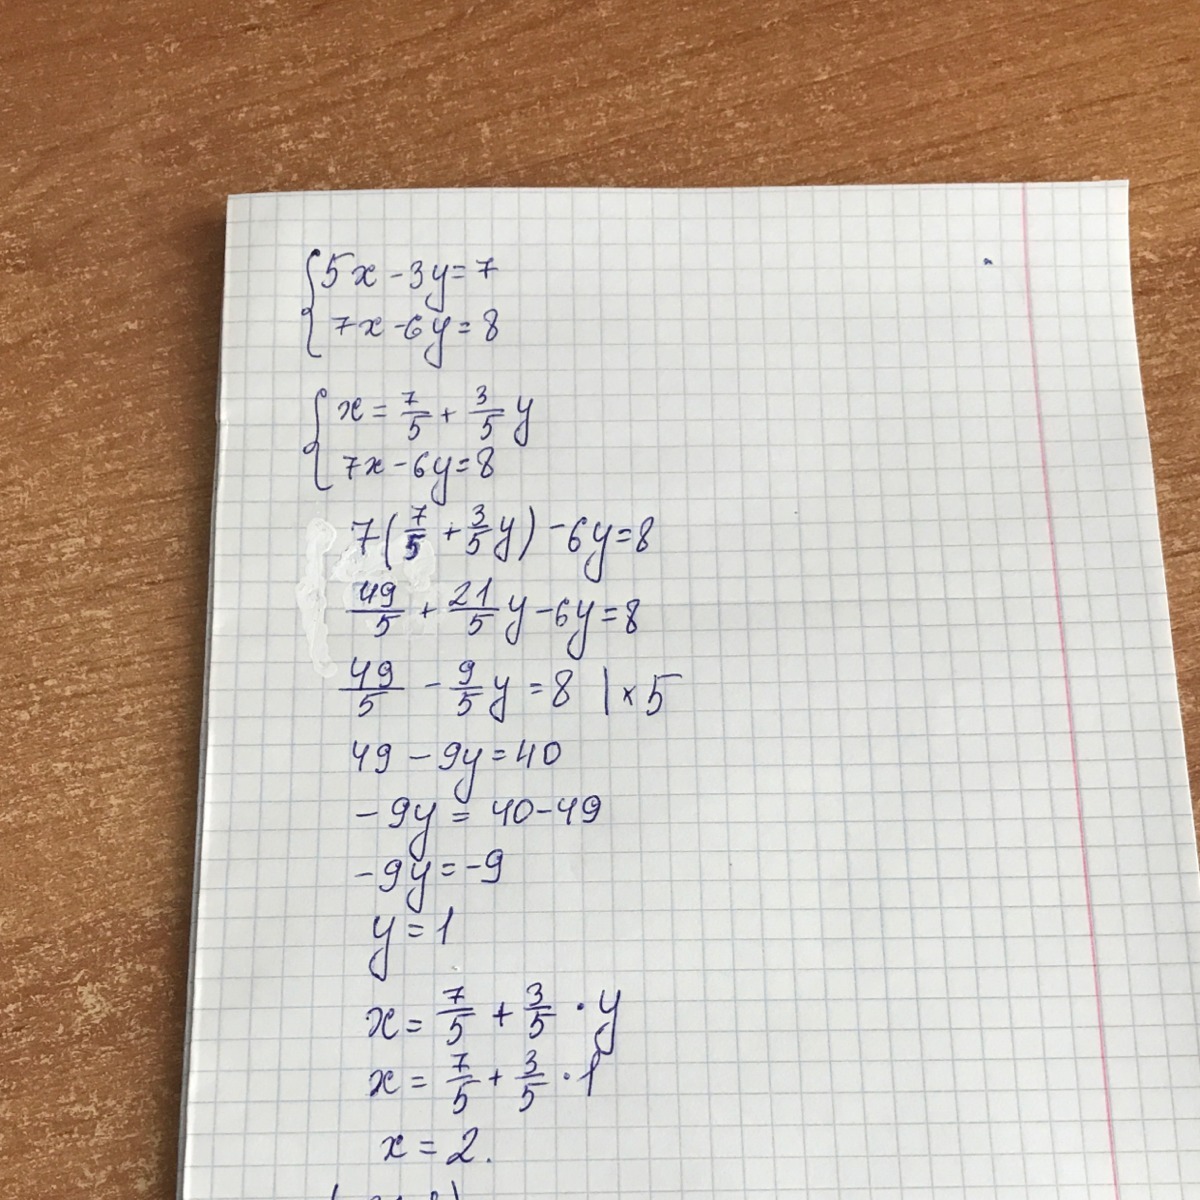 {5x - 3y = 7
7x - 6y = 8
{x = 7/5 + 3/5 y
7x - 6y = 8
7(7/5 + 3/5 y) - 6y = 8
49/5 + 21/5 y - 6y = 8
49/5 - 9/5 y = 8 | × 5
49 - 9y = 40
- 9y = 40 - 49
- 9y = -9
y = 1
x = 7/5 + 3/5 · y
x = 7/5 + 3/5 · 1
x = 2.